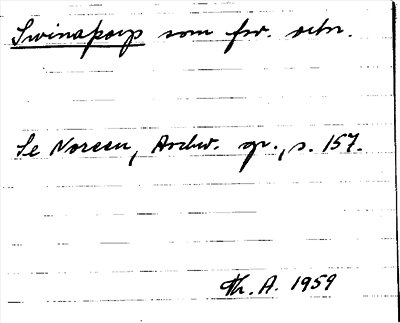 Swinaþorp som fsv. ortn.
Se Noreen, Aschw. gr., s. 157.
Th. A. 1959